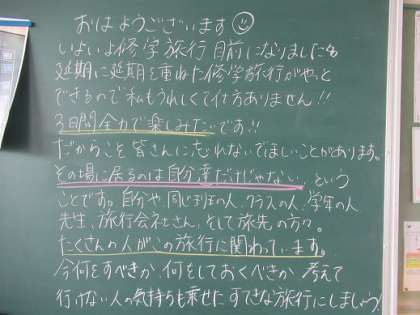 おはようございます
いよいよ修学旅行目前になりましたね
延期に延期を重ねた修学旅行がやっと
できるので私もうれしくて仕方ありません!!
3日間全力で楽しみたいです!!
だからこそ皆さんに忘れないでほしいことがあります。
その場に居るのは自分達だけじゃない、という
ことです。自分や同じ班の人、クラスの人、学年の人
先生、旅行会社さん、そして旅先の方々。
たくさんの人がこの旅行に関わっています。
今何をすべきか、何をしておくべきか考えて
行けない人の気持ちも乗せたすてきな旅行にしましょう!